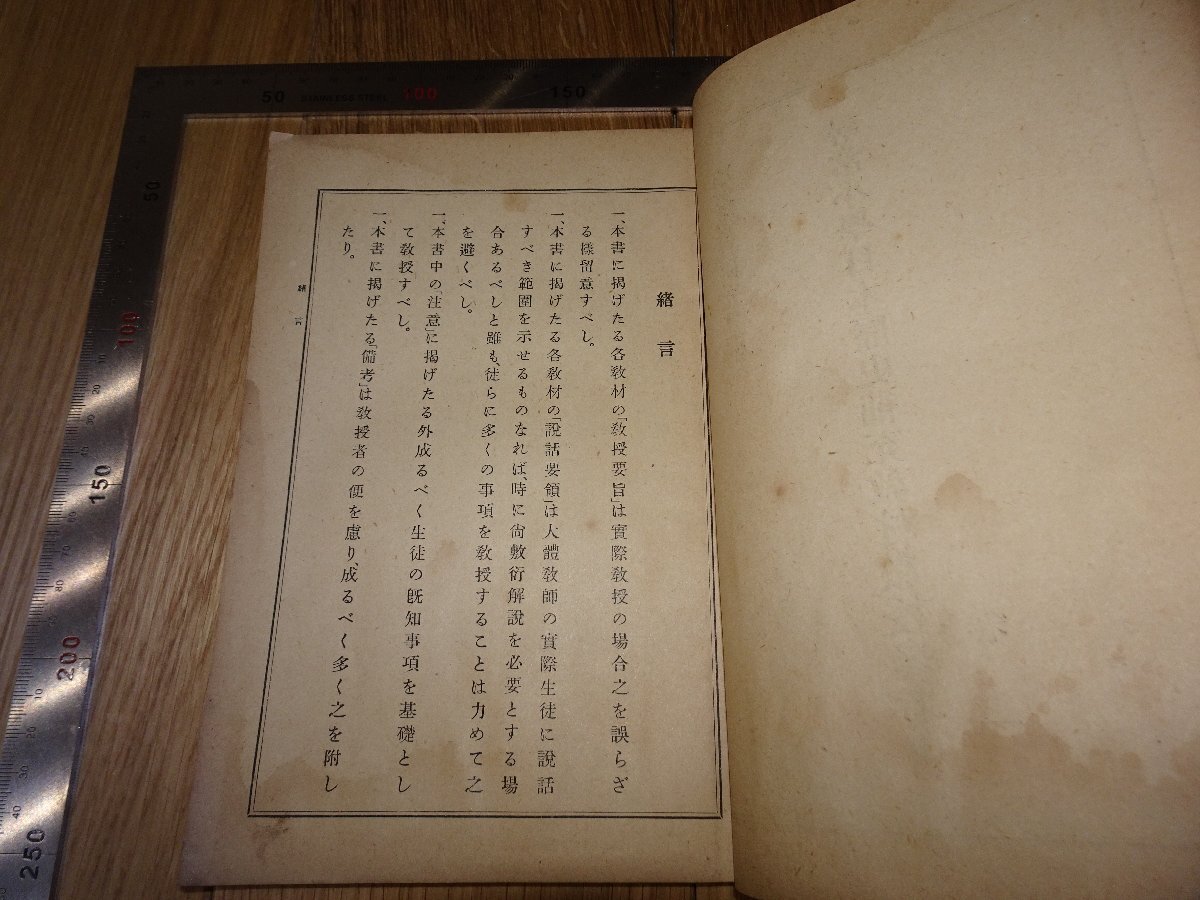 緒言
一、本書に揭げたる各敎材の「敎授要旨」は實際敎授の場合之を誤らざ
る樣留意すべし。
一、本書に揭げたる各敎材の「說話要領」は大體敎師の實際生徒に說話
すべき範圍を示せるものなれば、時に尙敷衍解說を必要とする場
合あるべしと雖も、徒らに多くの事項を敎授することは力めて之
を避くべし。
一、本書中の「注意」に揭げたる外成るべく生徒の旣知事項を基礎とし
て敎授すべし。
一、本書に揭げたる「備考」は敎授者の便を慮り、成るべく多く之を附し
たり。
緒言
50 STAINLESS STEEL 100 150
50
100
150
200
250